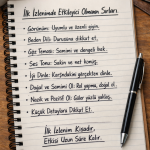 İlk İzlenimde Etkileyici Olmanın Sırları.
• Görünüm: Uyumlu ve özenli giyin.
• Beden Dili: Duruşuna dikkat et.
• Göz Teması: Samimi ve dengeli bak.
• Ses Tonu: Sakin ve net konuş.
• İyi Dinle: Karşındakini gerçekten dinle.
• Doğal ve Samimi Ol: Rol yapma, doğal ol.
• Nazik ve Pozitif Ol: Güler yüzlü yaklaş.
• Küçük Detaylara Dikkat Et.
İlk İzlenim Kısadır,
Etkisi Uzun Süre Kalır.